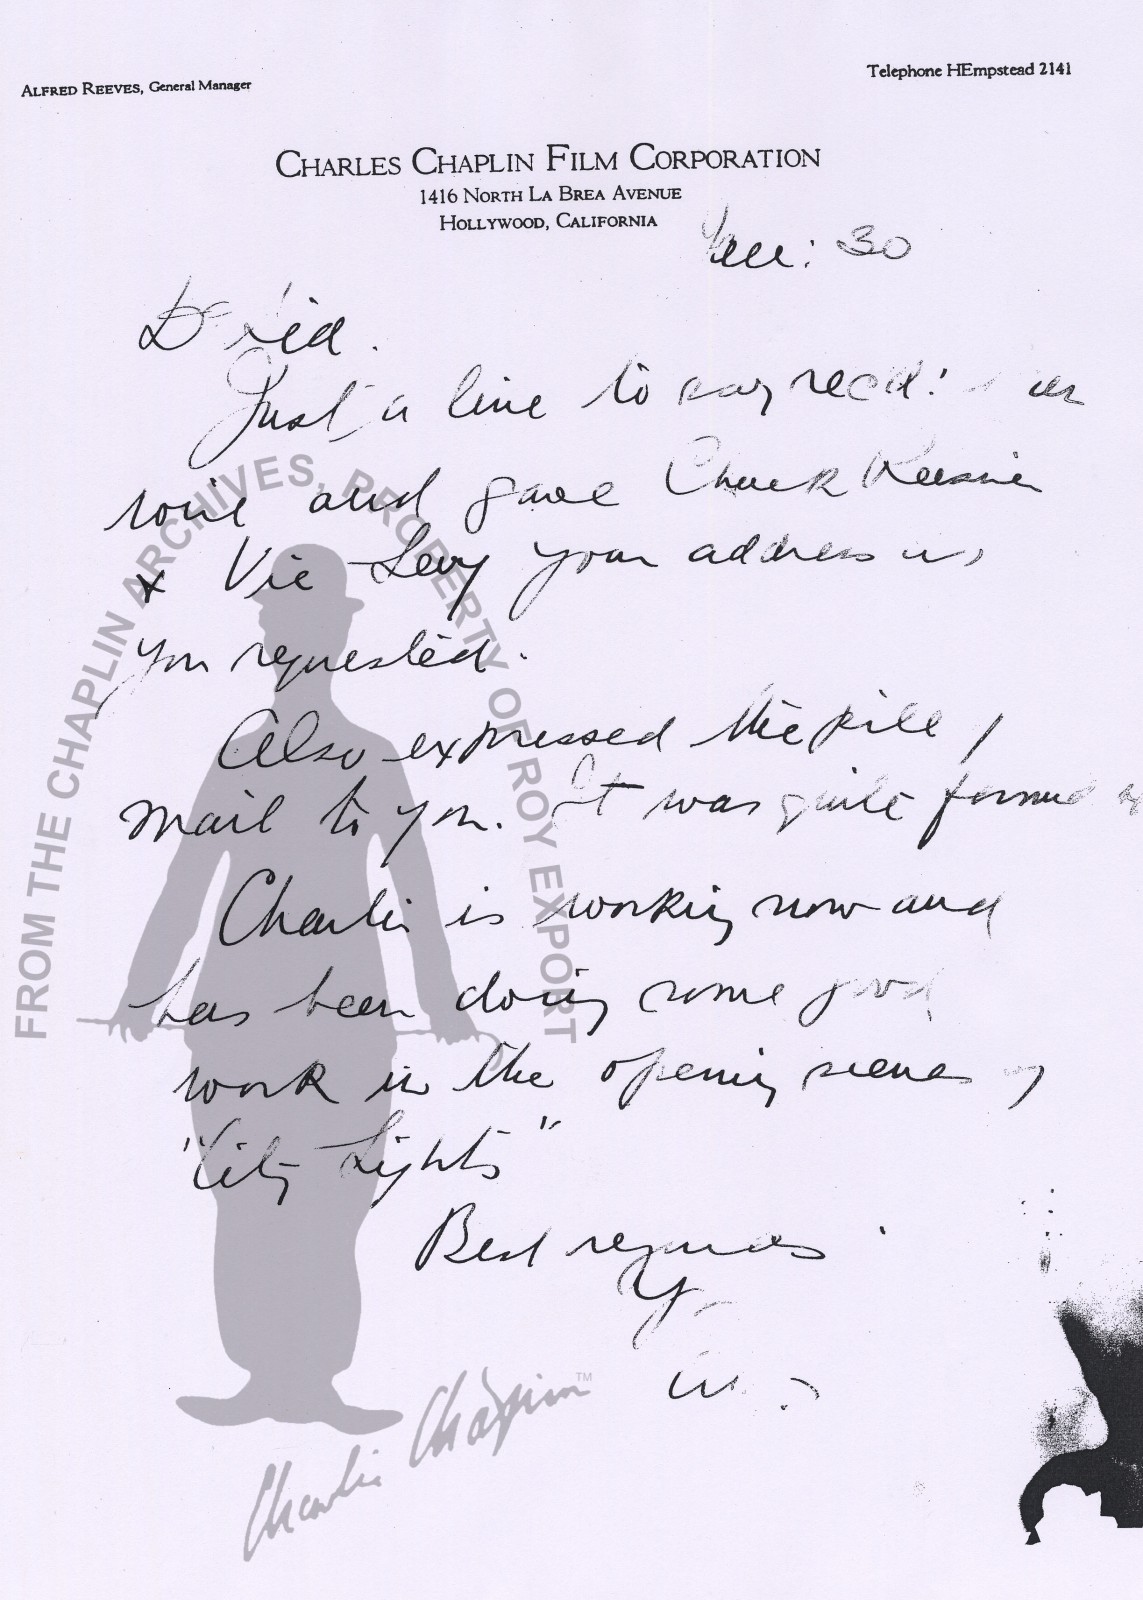 ALFRED REEVES, General Manager
Telephone HEmpstead 2141
CHARLES CHAPLIN FILM CORPORATION
1416 NORTH LA BREA AVENUE
HOLLYWOOD, CALIFORNIA
30
Just a line to say recd:
and gave Chuck
& Vic Levy your address as
you requested.
Also expressed the pile
mail to you. It was quite
Charlie is working now and
has been doing some good
work in the opening scenes of
"City Lights"
Best regards
FROM THE CHAPLIN ARCHIVES, PROPERTY OF ROY EXPORT
Charlie Chaplin™